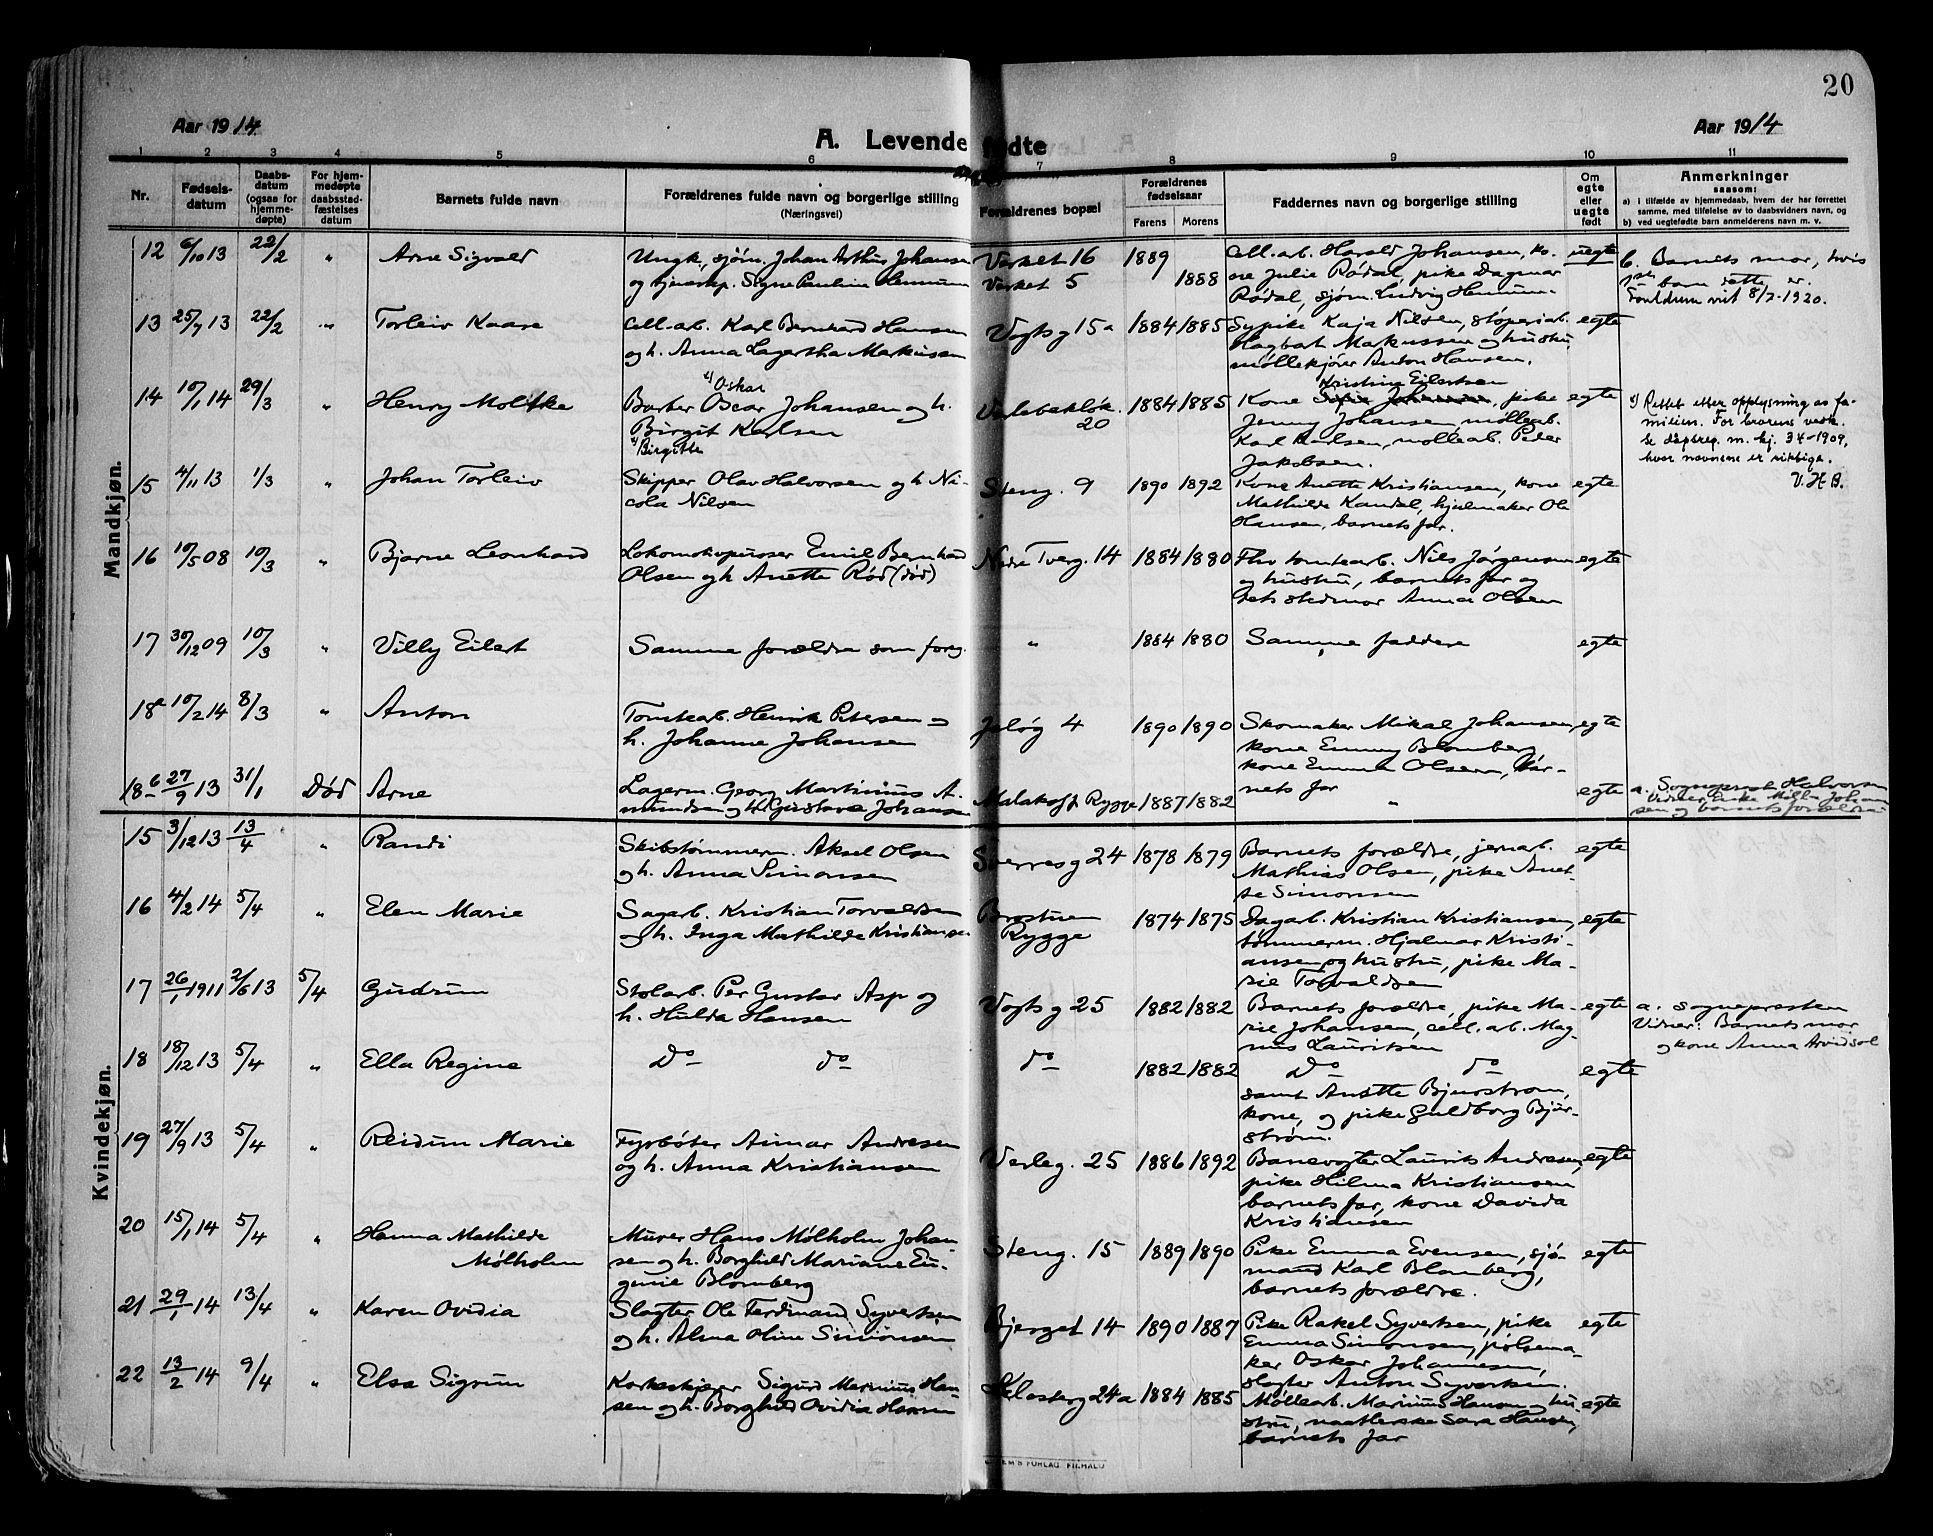 20
Aar 1914
A. Levende fødte
Aar 1914
1 2 3 4 5 6 7 8 9 10 11
Nr.
Fødsels-
datum
Daabs-
datum
(ogsaa for
hjemme-
døpte)
For hjem-
medøpte
daabsstad-
fæstelses
datum
Barnets fulde navn
Forældrenes fulde navn og borgerlige stilling
(Næringsvei)
Forældrenes bopæl
Forældrenes
fødselsaar
Farens Morens
Faddernes navn og borgerlige stilling
Om
egte
eller
uegte
født
Anmerkninger
saasom:
a) I tilfælde av hjemmedaab, hvem der har forrettet
samme, med tilføielse av to daabsvidners navn, og
b) ved uegtefødte barn anmelderens navn m. v.
Mandkjøn.
12 6/10 13 22/2 " Arne Sigvald
Ungk., sjøm. Johan Arthur Johansen
og tjenestep. Signe Pauline Hennum
Verket 16 1889
Verket 5 1888
Cell.arb. Harald Johansen, ko-
ne Julie Rødal, pike Dagmar
Rødal, sjøm. Ludvig Hennum
uegte
b. Barnets mor, hvis
1ste barn dette er.
8/7-1920.
13 25/7 13 22/2 " Torleiv Kaare
Cell.arb. Karl Bernhard Hansen
og h. Anna Lagertha Markussen
Vogts g 15a 1884 1885
Sypike Kaja Nilsen, støperiarb.
Hagbat Markussen og hustru,
møllekjører Anton Hansen.
egte
14 10/1 14 29/3 " Henry Moltke
1) Oskar
Barber Oscar Johansen og h.
Birgit Karlsen
1) Birgitte
Varlebakløk.
20
1884 1885
Kristine Eilertsen
Kone Sofie Johansen, pike
Jenny Johansen, møllearb.
Karl Karlsen, møllearb. Peder
Jakobsen.
egte
1) Rettet efter opplysning av fa-
milien. For brorens vedk.
se dåpsreg. m. kj. 34-1909,
hvor navnene er riktige.
V. H. B.
15 4/11 13 1/3 " Johan Torleiv
Skipper Olav Halvorsen og h. Ni-
cola Nilsen
Steng. 9 1890 1892
Kone Anette Kristiansen, kone
Mathilde Kandal, hjulmaker Ole
Hansen, barnets far.
egte
16 10/5 08 10/3 " Bjarne Leonhard
Lokomotivpusser Emil Bernhard
Olsen og h. Anette Rød (død)
Nedre Tverg. 14 1884 1880
Fhv tomtearb. Nils Jørgensen
og hustru, barnets far og
dets stedmor Anna Olsen
egte
17 30/12 09 10/3 " Villy Eilert
Samme forældre som foreg.
" 1884 1880
Samme faddere
egte
18a 10/2 14 8/3 " Anton
Tomtearb. Henrik Petersen og
h. Johanne Johansen
Jeløg 4 1890 1890
Skomaker Mikal Johansen,
kone Emmy Blomberg,
kone Emma Olsen, bar-
nets far
egte
18b 27/9 13 31/1 Død Arne
Lagerm. Georg Martinius A-
mundsen og h. Gustava Johansen
Malakoff Rygge 1887 1882
"
egte
a. Sogneprest Halvorsen
sen og barnets forældre
Kvindekjøn.
15 3/12 13 13/4 " Randi
Skibstømmerm. Aksel Olsen
og h. Anna Simonsen
Sverres g 24 1878 1879
Barnets forældre, jernarb.
Mathias Olsen, pike Anet-
te Simonsen
egte
16 4/2 14 5/4 " Elen Marie
Sagarb. Kristian Torvaldsen
og h. Inga Mathilde Kristiansen
Brostuen
Rygge
1874 1875
Sagarb. Kristian Kristiansen,
tømmerm. Hjalmar Kristi-
ansen og hustru, pike Ma-
rie Torvaldsen
egte
17 26/1 1911 2/6 13 5/4 Gudrun
Stolarb. Per Gustav Asp og
h. Hulda Hansen
Vogts g 25 1882 1882
Barnets forældre, pike Ma-
rie Johansen, cell.arb. Mag-
nus Lauritsen
egte
a. Sognepresten
Vidner: Barnets mor
og kone Anna Arvidsol
18 18/12 13 5/4 " Ella Regine
Do do
do 1882 1882
Do do
samt Anette Bjurstrøm,
kone, og pike Guldborg Bjur-
strøm.
egte
19 27/9 13 5/4 " Reidun Marie
Fyrbøter Aimar Andresen
og h. Anna Kristiansen
Varleg. 25 1886 1892
Banevogter Laurits Andresen,
pike Hilma Kristiansen
barnets far, kone Davida
Kristiansen
egte
20 15/1 14 5/4 " Hanna Mathilde
Mølholm
Murer Hans Mølholm Johan-
sen og h. Borghild Mariane Eu-
genie Blomberg
Steng. 15 1889 1890
Pike Emma Evensen, sjø-
mand Karl Blomberg,
barnets forældre.
egte
21 29/1 14 13/4 " Karen Ovidia
Slagter Ole Ferdinand Syvertsen
og h. Alma Oline Simonsen
Bjerget 14 1890 1887
Pike Rakel Syvertsen, pike
Emma Simonsen, pølsema-
ker Oskar Johannesen,
slagter Anton Syvertsen.
egte
22 13/2 14 9/4 " Elsa Sigrun
Korkeskjærer Sigurd Marinius Han-
sen og h. Borghild Ovidia Hansen
Klosterg 24a 1884 1885
Møllearb. Marinius Hansen og hu-
stru, Sara Hansen,
barnets far
egte
FORLAG. FR.HALD